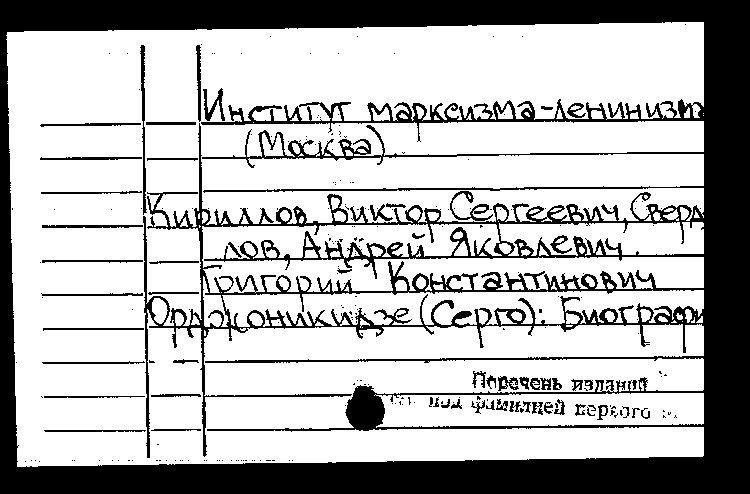 Институт марксизма-ленинизма
(Москва).
Кириллов, Виктор Сергеевич, Сверд
лов, Андрей Яковлевич.
Григорий Константинович
Орджоникидзе (Серго): Биографи
Перечень изданий
под фамилией первого